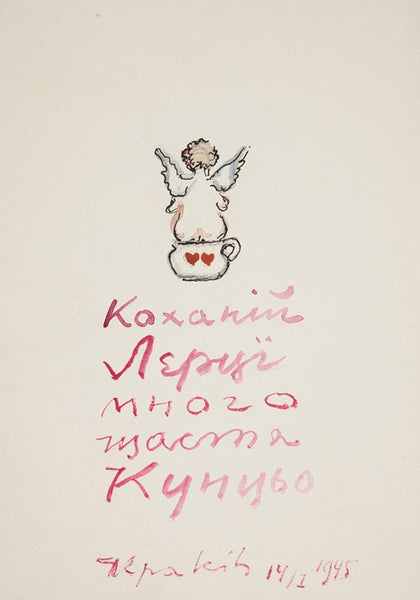 Коханій
Лерці
много
щастя
Куньцьо
Краків 14/I 1945